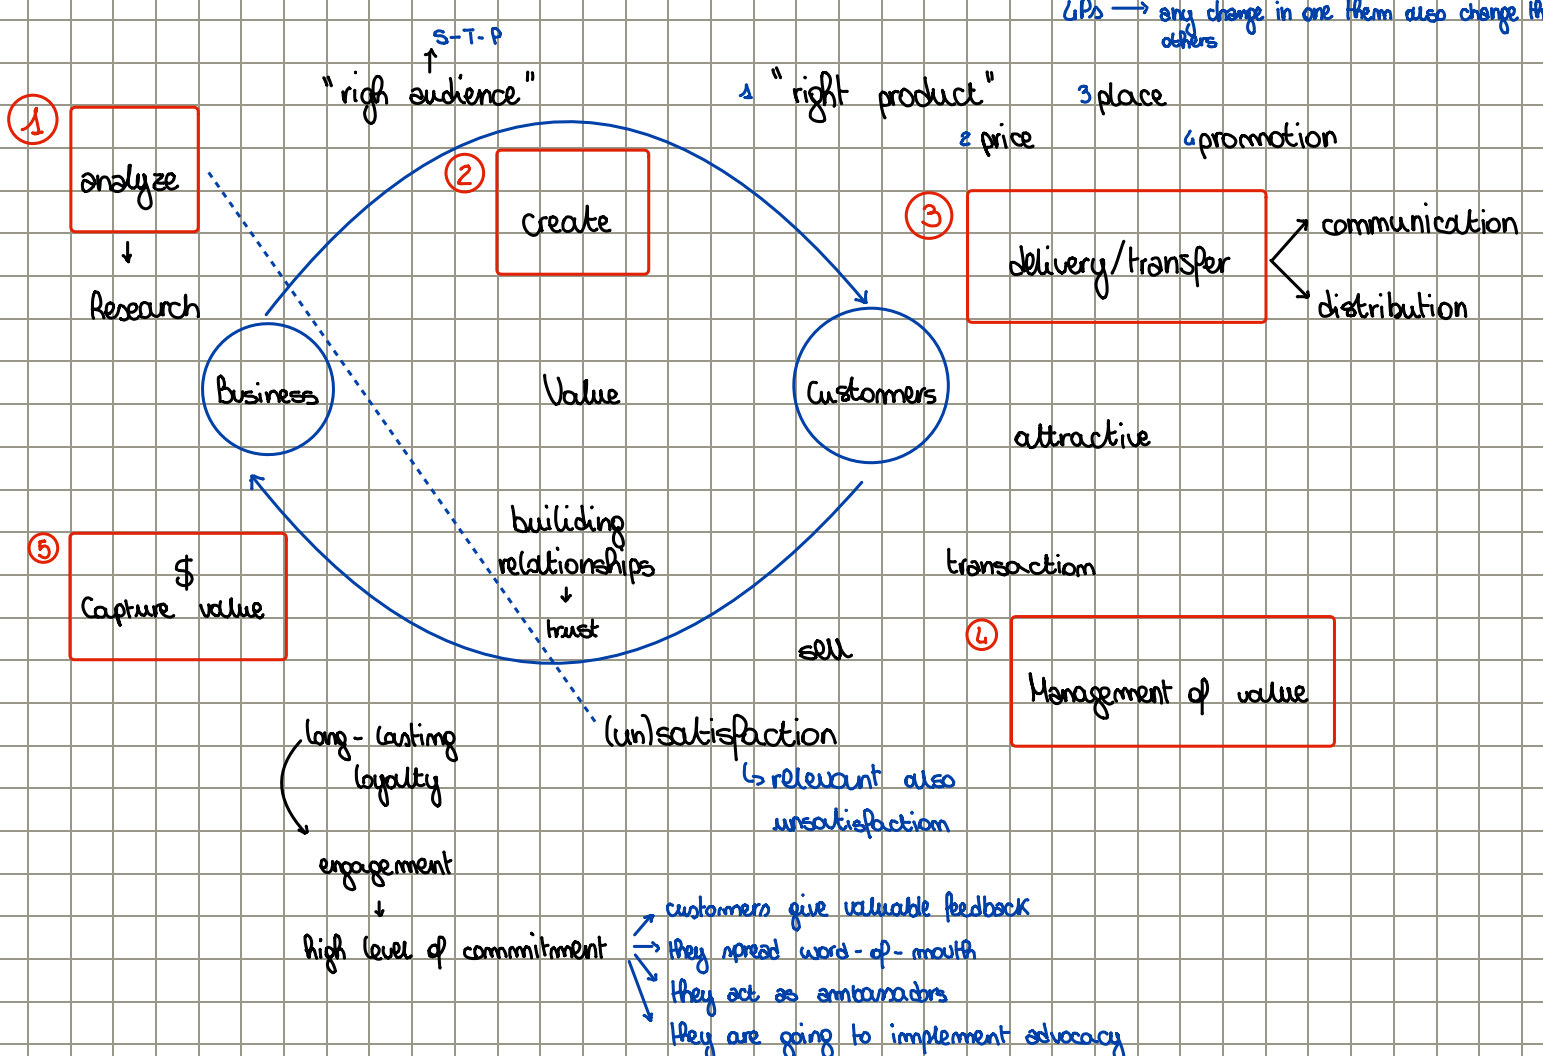 4Ps → any change in one them also change th
others
S-T-P
"righ audience"
1 "right product"
3 place
2 price
4 promotion
1
analyze
↓
Research
2
create
3
delivery/transfer
communication
distribution
Business
Value
Customers
attractive
builiding
relationships
↓
trust
transaction
5
$
Capture value
sell
4
Management of value
long-lasting
loyalty
(un)satisfaction
↳ relevant also
unsatisfaction
engagement
↓
high level of commitment
customers give valuable feedback
they spread word-of-mouth
they act as ambanadors
they are going to implement advocacy